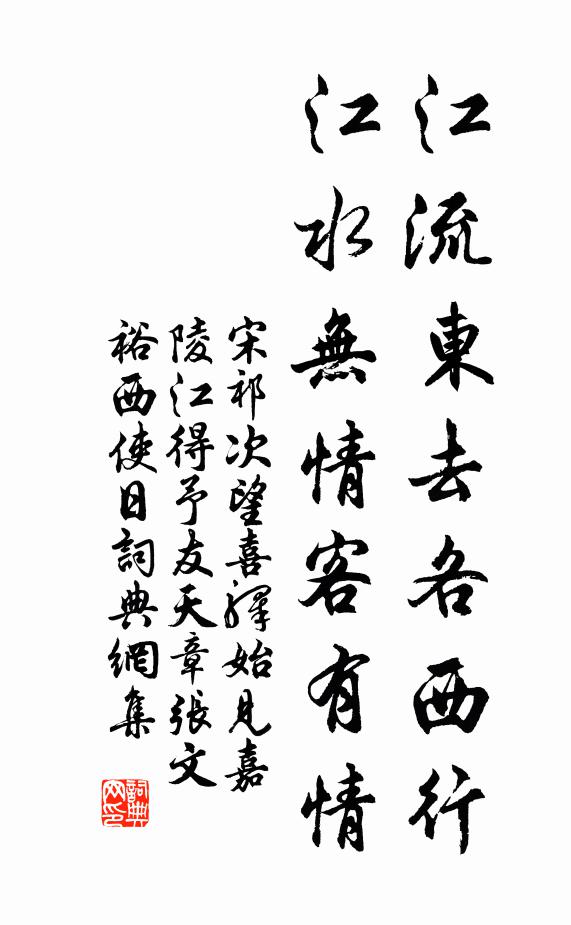 江流東去各西行
江水無情客有情
宋祁次望喜驛始見嘉
陵江得予友天章張文
裕西使日詞典網集
詞典
网印